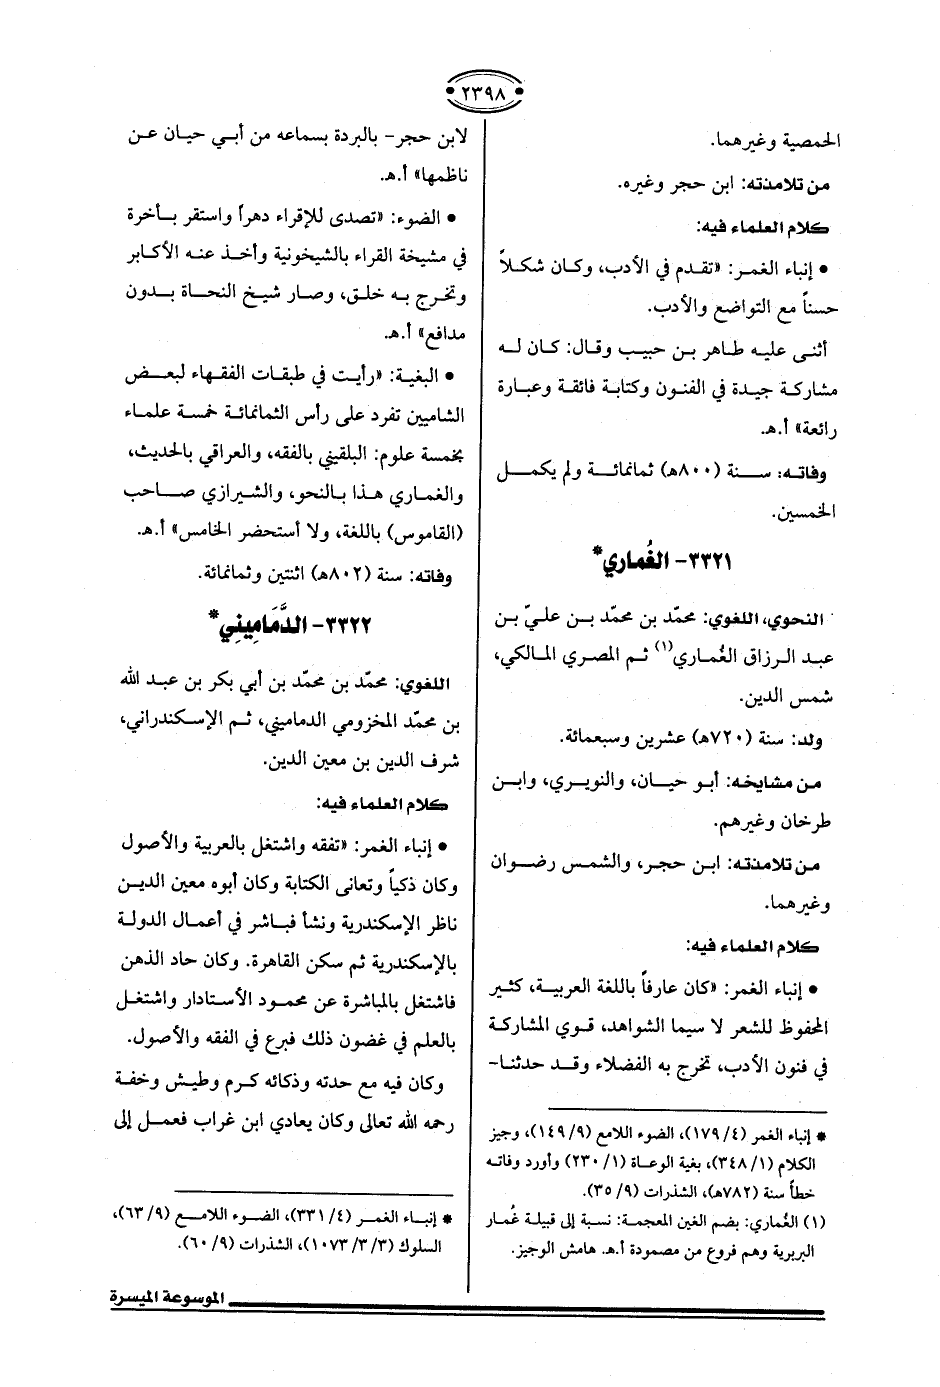 ٢٣٩٨
الحمصية وغيرهما.
من تلامذته: ابن حجر وغيره.
كلام العلماء فيه:
• إنباء الغمر: «تقدم في الأدب، وكان شكلاً
حسناً مع التواضع والأدب.
أثنى عليه طاهر بن حبيب وقال: كان له
مشاركة جيدة في الفنون وكتابة فائقة وعبارة
رائعة» أ.هـ.
وفاته: سنة (٨٠٠هـ) ثمانمائة ولم يكمل
الخمسين.
٣٣٢١- الغُماري*
النحوي، اللغوي: محمّد بن محمّد بن عليّ بن
عبد الرزاق الغُماري(١) ثم المصري المالكي،
شمس الدين.
ولد: سنة (٧٢٠هـ) عشرين وسبعمائة.
من مشايخه: أبو حيان، والنويري، وابن
طرخان وغيرهم.
من تلامذته: ابن حجر، والشمس رضوان
وغيرهما.
كلام العلماء فيه:
• إنباء الغمر: «كان عارفاً باللغة العربية، كثير
المحفوظ للشعر لا سيما الشواهد، قوي المشاركة
في فنون الأدب، تخرج به الفضلاء وقد حدثنا-
* إنباء الغمر (٤/ ١٧٩)، الضوء اللامع (٩/ ١٤٩)، وجيز
الكلام (١/ ٣٤٨)، بغية الوعاة (١/ ٢٣٠) وأورد وفاته
خطأ سنة (٧٨٢هـ)، الشذرات (٩/ ٣٥).
(١) الغُماري: بضم الغين المعجمة: نسبة إلى قبيلة غُمار
البربرية وهم فروع من مصمودة أ.هـ. هامش الوجيز.
لابن حجر- بالبردة بسماعه من أبي حيان عن
ناظمها» أ.هـ.
• الضوء: «تصدى للإقراء دهراً واستقر بأخرة
في مشيخة القراء بالشيخونية وأخذ عنه الأكابر
وتخرج به خلق، وصار شيخ النحاة بدون
مدافع» أ.هـ.
• البغية: «رأيت في طبقات الفقهاء لبعض
الشاميين تفرد على رأس الثمانمائة خمسة علماء
بخمسة علوم: البلقيني بالفقه، والعراقي بالحديث،
والغماري هذا بالنحو، والشيرازي صاحب
(القاموس) باللغة، ولا أستحضر الخامس» أ.هـ.
وفاته: سنة (٨٠٢هـ) اثنتين وثمانمائة.
٣٣٢٢- الدَّمَامِيني*
اللغوي: محمّد بن محمّد بن أبي بكر بن عبد الله
بن محمّد المخزومي الدماميني، ثم الإسكندراني،
شرف الدين بن معين الدين.
كلام العلماء فيه:
• إنباء الغمر: «تفقه واشتغل بالعربية والأصول
وكان ذكياً وتعانى الكتابة وكان أبوه معين الدين
ناظر الإسكندرية ونشأ فباشر في أعمال الدولة
بالإسكندرية ثم سكن القاهرة. وكان حاد الذهن
فاشتغل بالمباشرة عن محمود الأستادار واشتغل
بالعلم في غضون ذلك فبرع في الفقه والأصول.
وكان فيه مع حدته وذكائه كرم وطيش وخفة
رحمه الله تعالى وكان يعادي ابن غراب فعمل إلى
* إنباء الغمر (٤/ ٣٣١)، الضوء اللامع (٩/ ٦٣)،
السلوك (٣/ ٣/ ١٠٧٣)، الشذرات (٩/ ٦٠).
الموسوعة الميسرة